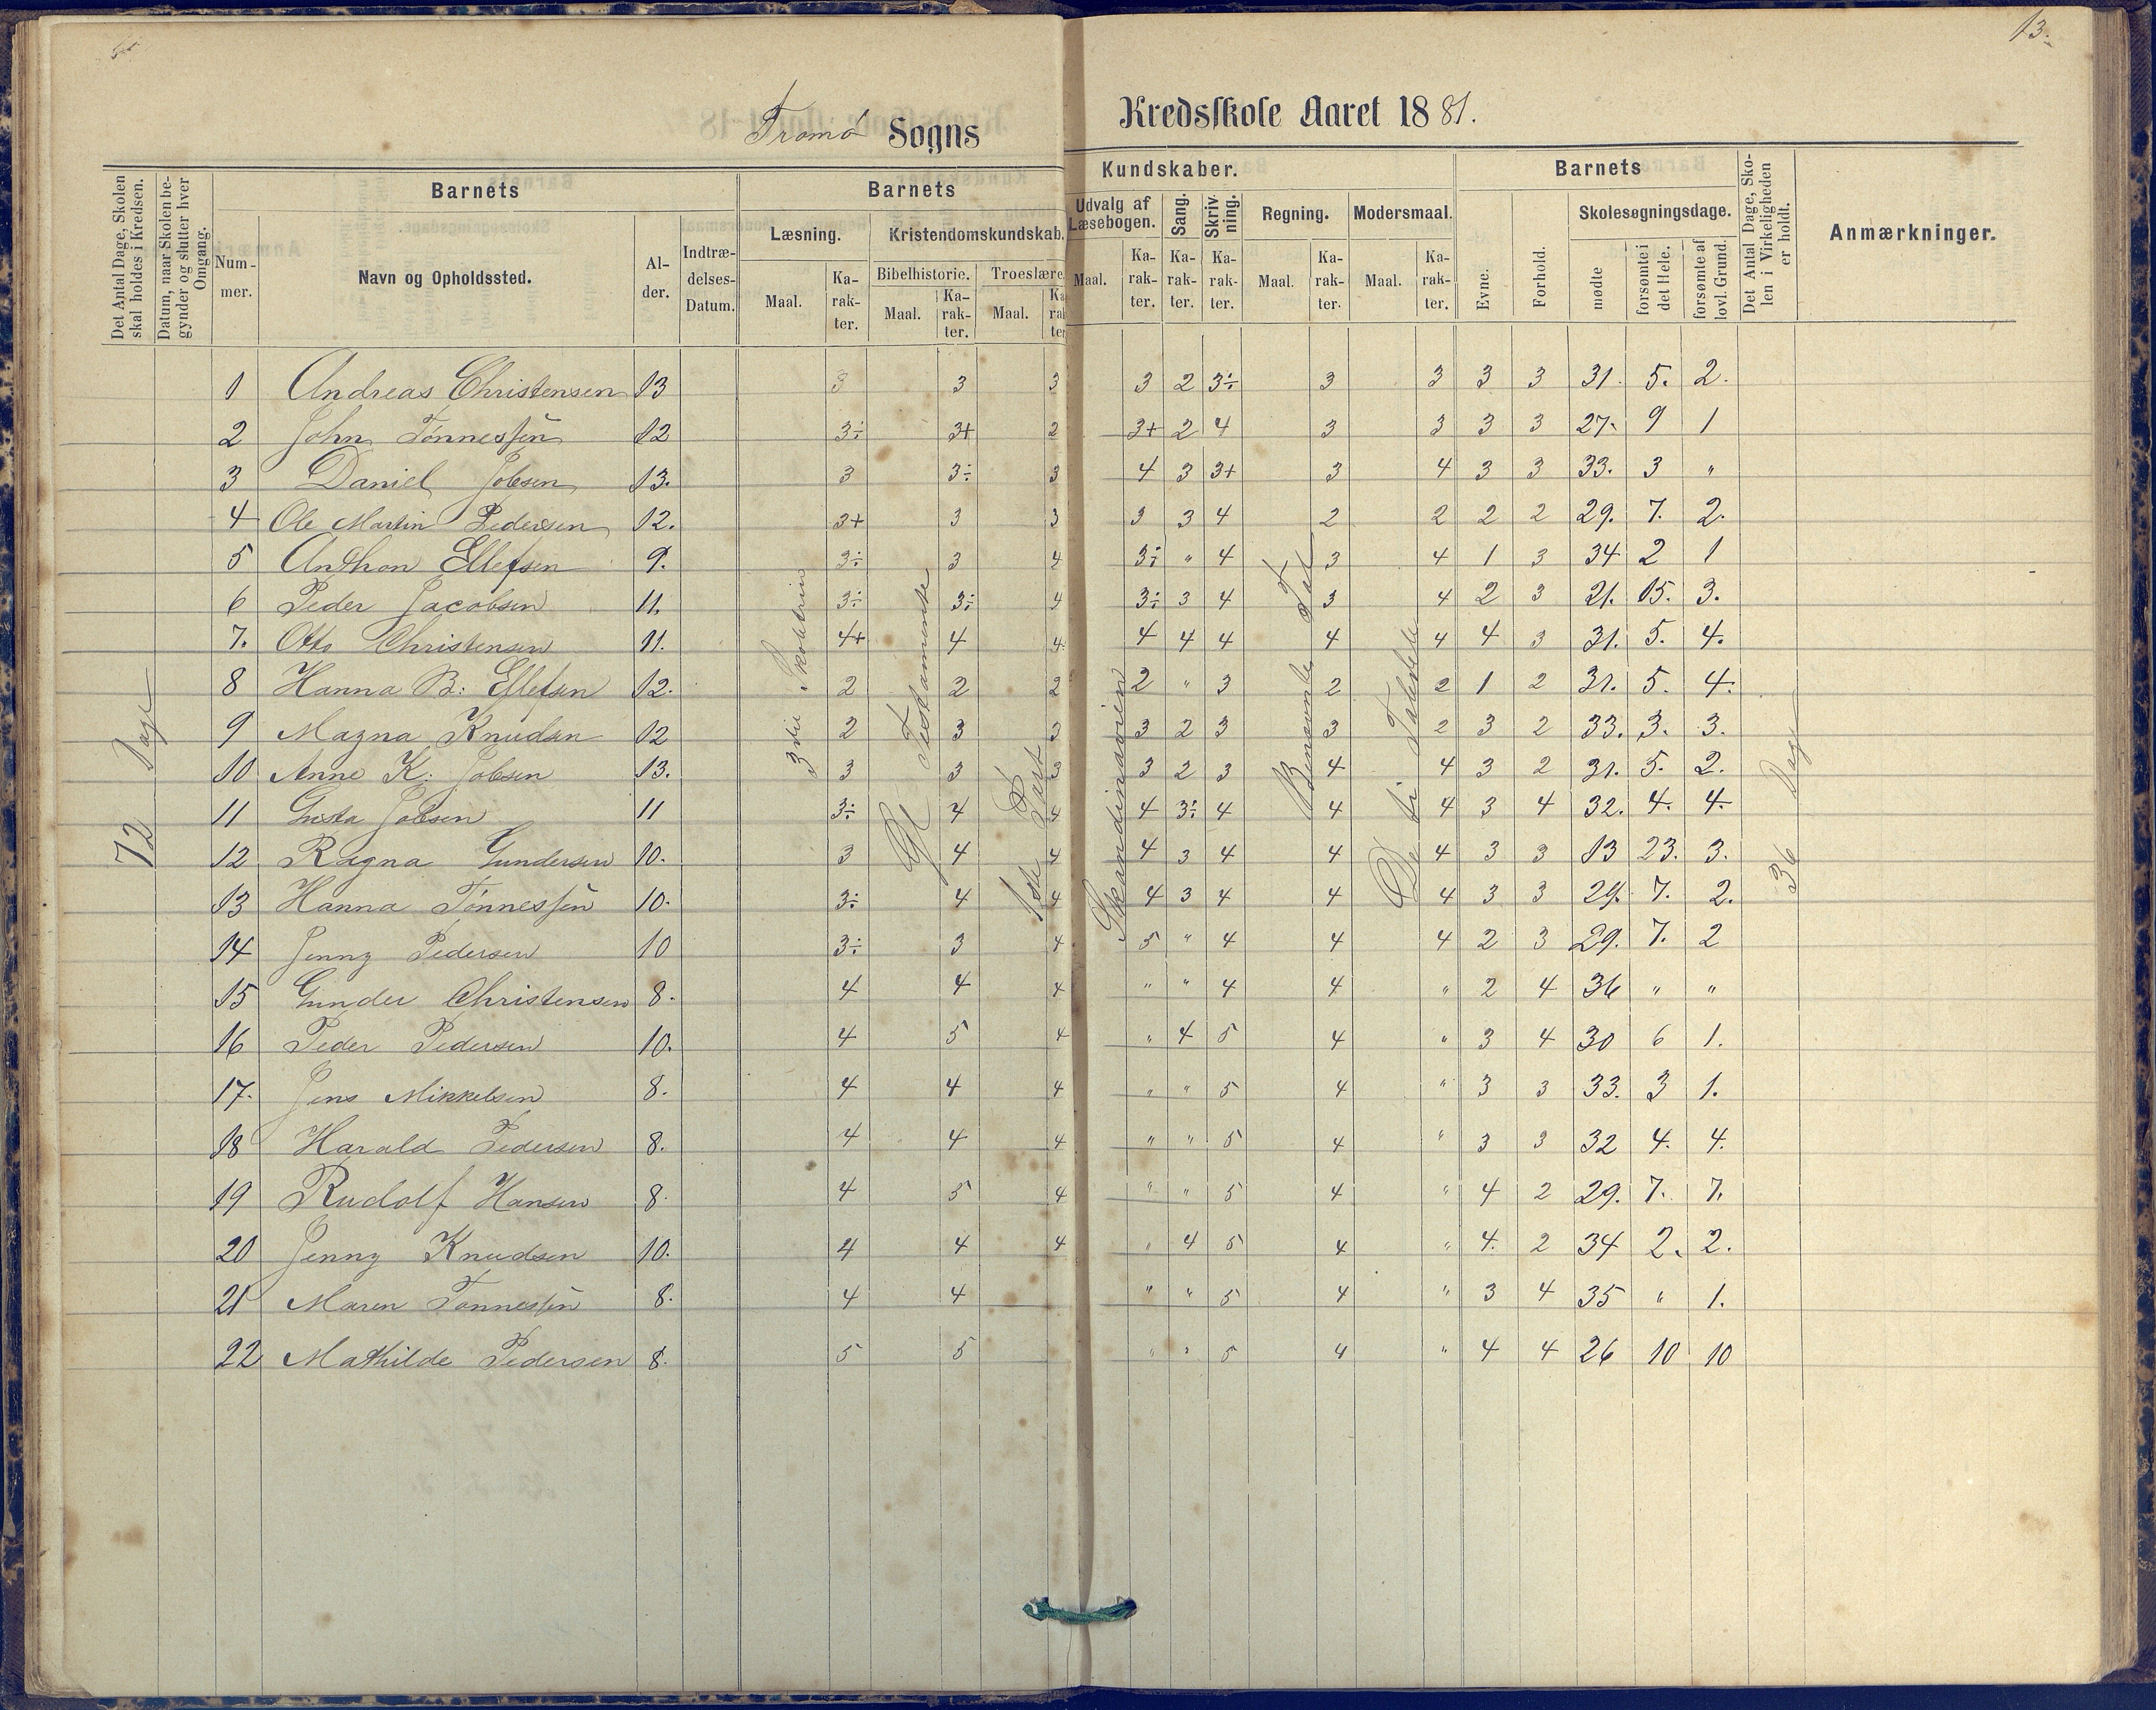 13.
Tromø Sogns Kredsskole Aaret 1881.
Det Antal Dage, Skolen skal holdes i Kredsen.
Datum, naar Skolen begynder og slutter hver Omgang.
Barnets
Nummer.
Navn og Opholdssted.
Alder.
Indtrædelses-Datum.
Barnets Kundskaber.
Læsning.
Maal. Karakter.
Kristendomskundskab.
Bibelhistorie. Troeslære
Maal. Karakter. Maal. Karakter
Udvalg af Læsebogen.
Maal. Karakter.
Sang. Karakter.
Skrivning. Karakter.
Regning.
Maal. Karakter.
Modersmaal.
Maal. Karakter.
Barnets
Evne.
Forhold.
Skolesøgningsdage.
mødte
forsømte i det Hele.
forsømte af lovl. Grund.
Det Antal Dage, Skolen i Virkeligheden er holdt.
Anmærkninger.
1 Andreas Christensen 13 3 3 3 3 2 3÷ 3 3 3 3 31. 5. 2.
2 John Tønnessen 12 3÷ 3+ 2 3+ 2 4 3 3 3 3 27. 9 1
3 Daniel Jobsen 13. 3 3÷ 3 4 3 3+ 3 4 3 3 33. 3 "
4 Ole Martin Pedersen 12. 3+ 3 3 3 3 4 2 2 2 2 29. 7. 2.
5 Anthon Ellefsen 9. 3÷ 3 4 3÷ " 4 3 4 1 3 34 2 1
6 Peder Jacobsen 11. 3÷ 3÷ 4 3÷ 3 4 3 4 2 3 21. 15. 3.
7. Otto Christensen 11. 4+ 4 4. 4 4 4 4 4 4 3 31. 5. 4.
8 Hanna B: Ellefsen 12. 2 2 2 2 " 3 2 2 1 2 31. 5. 4.
9 Magna Knudsen 12 2 3 3 3 2 3 3 2 3 2 33. 3. 3.
10 Anne K. Jobsen 13. 3 3 3 3 2 3 4 4 3 2 31. 5. 2.
11 Gusta Jobsen 11 3÷ 4 4 4 3÷ 4 4 4 3 4 32. 4. 4.
12 Ragna Gundersen 10. 3 4 4 4 3 4 4 4 3 3 13 23. 3.
13 Hanna Tønnessen 10. 3÷ 4 4 4 3 4 4 4 3 3 29. 7. 2.
14 Jenny Pedersen 10 3÷ 3 4 5 " 4 4 4 2 3 29. 7. 2
15 Gunder Christensen 8. 4 4 4 " " 4 4 " 2 4 36 " "
16 Peder Pedersen 10. 4 5 4 " 4 5 4 " 3 4 30 6 1.
17. Jens Mikkelsen 8. 4 4 4 " " 5 4 " 3 3 33. 3 1.
18 Harald Pedersen 8. 4 4 4 " " 5 4 " 3 3 32 4. 4.
19 Rudolf Hansen 8. 4 5 4 " " 5 4 " 4 2 29. 7. 7.
20 Jenny Knudsen 10. 4 4 4 " 4 5 4 " 4. 2 34 2. 2.
21 Maren Tønnessen 8. 4 4 " " 5 4 " 3 4 35 " 1.
22 Mathilde Pedersen 8. 5 5 " " 5 4 " 4 4 26 10 10
72 Dage
3die Skoletrin
Gl Testamente
1ste Part
Skandinavien
Benævnte Tal
De ti Taledele
36 Dage